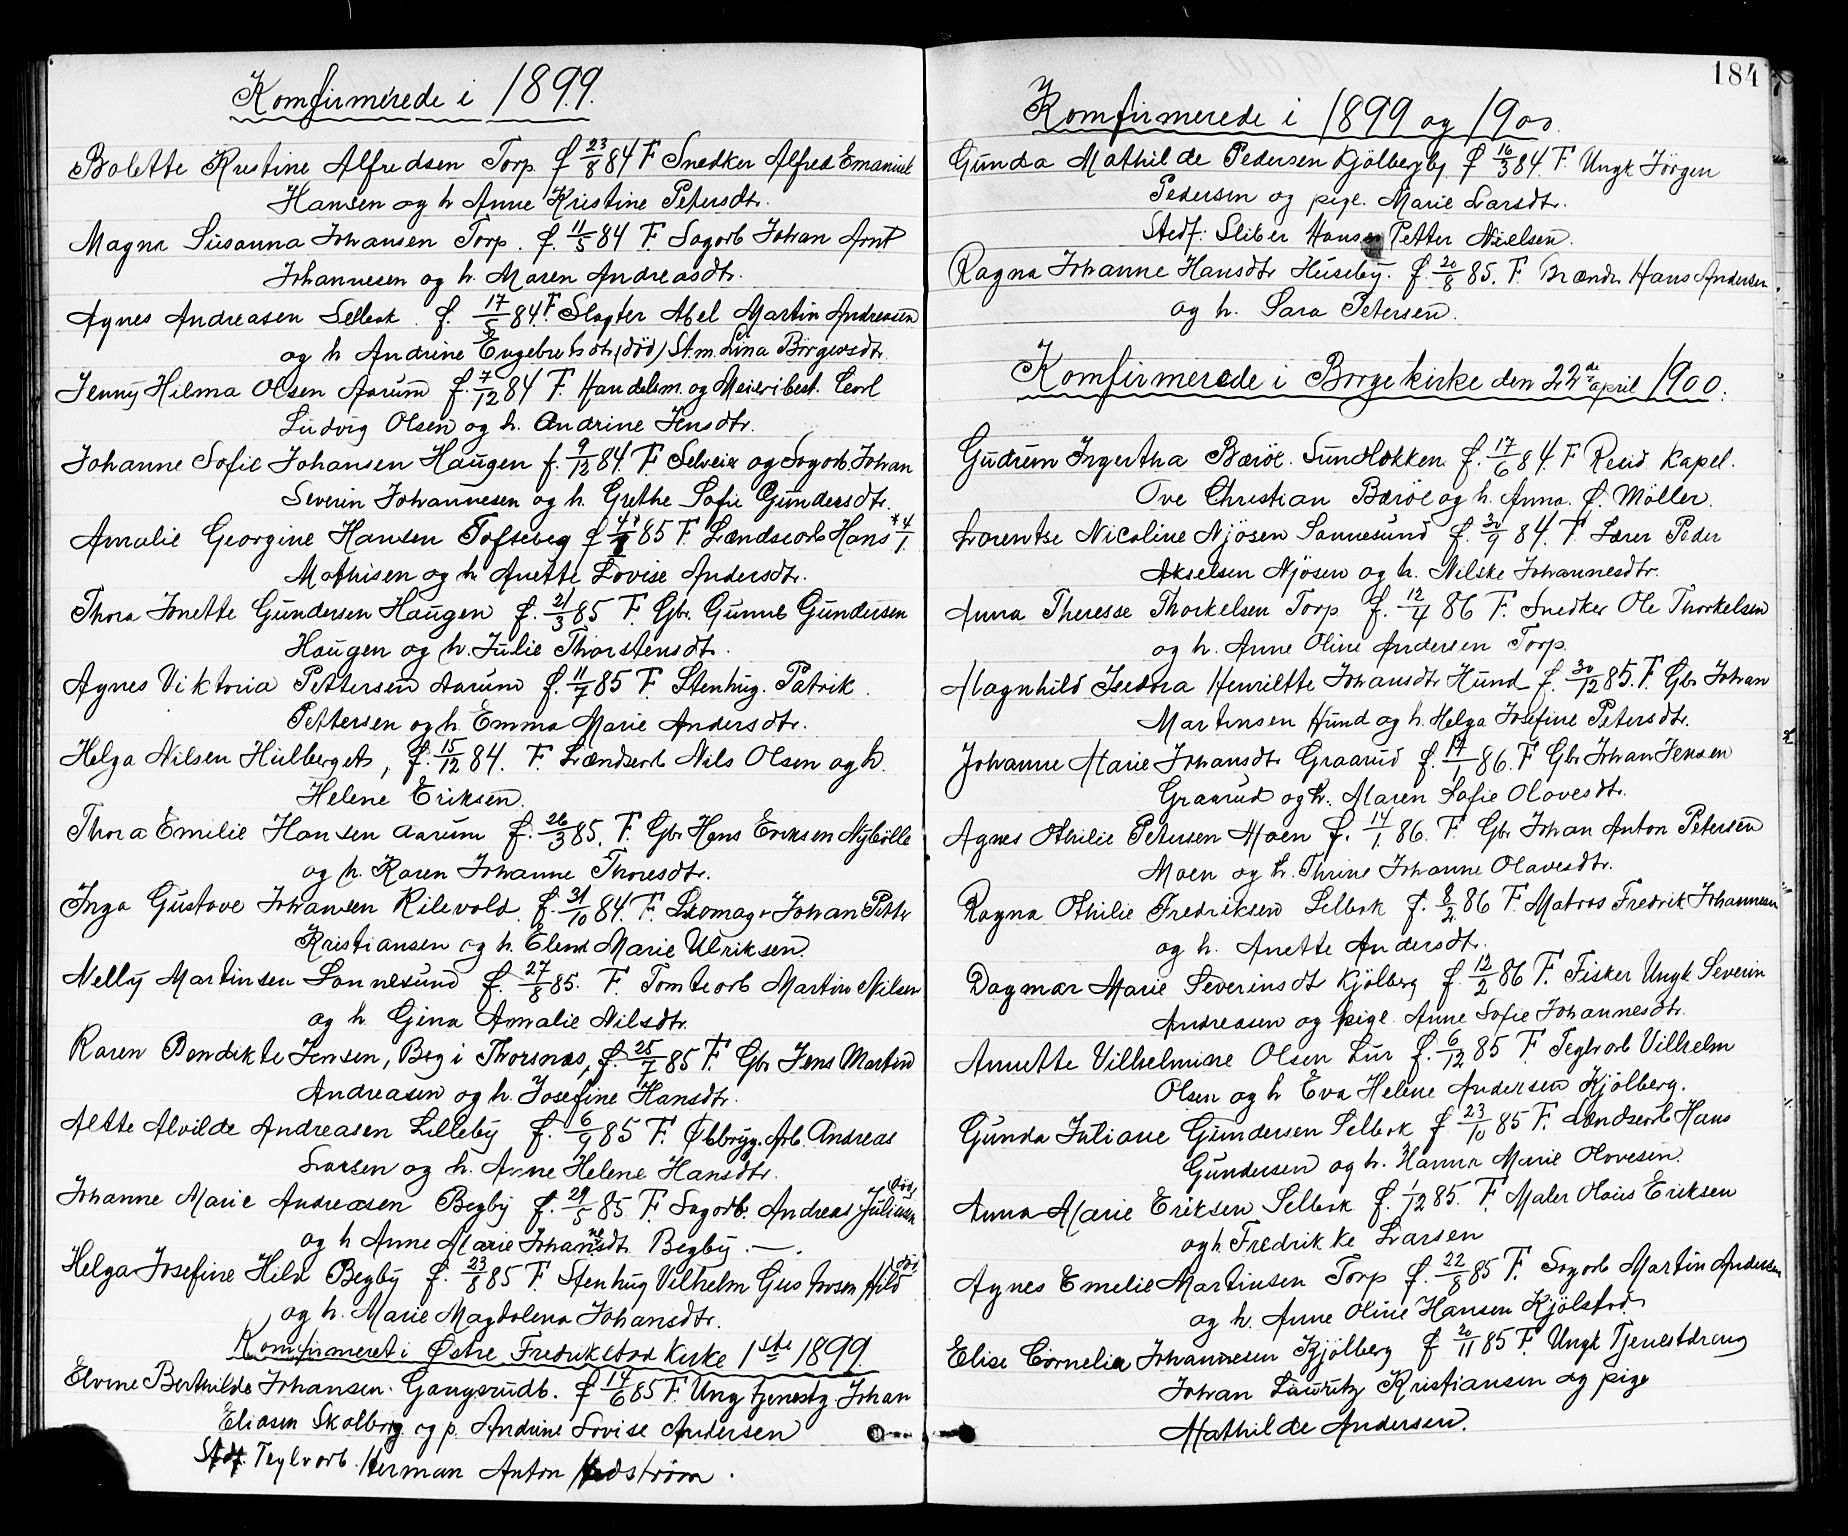 Komfirmerede i 1899.
Bolette Kristine Alfredsen Torp f 23/8 84 F Snedker Alfred Emanuel
Hansen og h Anne Kristine Petersdtr.
Magna Susanna Johansen Torp. f. 11/5 84 F. Sagarb Johan Arnt
Johannesen og h. Maren Andreasdtr.
Agnes Andreasen Selbak. f. 17/5 84. F Slagter Abel Martin Andreasen
og h Andrine Engebretsdtr, (död) St.m. Lina Börgersdtr.
Jenny Hilma Olsen Aarum f. 7/12 84 F. Handelsm. og Meieribest. Carl
Ludvig Olsen og h. Andrine Jensdtr.
Johanne Sofie Johansen Haugen f. 9/12 84. F Selveier og Sagarb. Johan
Severin Johannesen og h. Grethe Sofie Gundersdtr.
Amalie Georgine Hansen Tofteberg f 85 F. Landsarb Hans * 4/1.
Mathisen og h. Anette Lovise Andersdtr.
Thora Jonette Gundersen Haugen f. 21/3 85 F. Gbr. Gunne Gundersen
Haugen og h. Julie Thorstensdtr.
Agnes Viktoria Pettersen Aarum f. 11/7 85 F. Stenhug. Patrik
Pettersen og h. Emma Marie Andersdtr.
Helga Nilsen Hulberget, f. 15/12 84. F. Landsarb Nils Olsen og h.
Helene Eriksen.
Thora Emilie Hansen Aarum f. 26/3 85. F. Gbr Hans Eriksen Nyhölle
og h. Karen Johanne Thoresdtr.
Inga Gustave Johansen Rilevold f. 31/10 84. F. Skomagr Johan Petter
Kristiansen og h. Elend Marie Ulriksen.
Nelly Martinsen Sannesund f. 27/8 85. F. Tomtearb Martin Nilsen
og h. Gina Amalie Nilsdtr.
Karen Bendikte Jensen, Beg i Thorsnæs, f. 25/7 85 F. Gbr Jens Martin
Andreasen og h. Josefine Hansdtr.
Alette Alvilde Andreasen Lilleby f. 6/9 85 F. Ölbryg. Arb. Andreas
Larsen og h. Anne Helene Hansdtr.
Johanne Marie Andreasen Begby f. 29/5 85. F. Sagarb. Andreas Juliussen död
og h Anne Marie Johannesdtr. Begby.
Helga Josefine Hild Begby f. 23/8 85 F. Stenhug Vilhelm Gustavsen Hild död
og h. Marie Magdalena Johansdtr.
Komfirmeret i Østre Fredrikstad kirke 1ste 1899.
Elvine Berthilde Johansen. Gangsrudb. f 14/6 85 F. Ung tjenestg Johan
Eliasen Skalberg og p. Andrine Lovise Andersen
Stdf. Teglvarb. Herman Anton Hedström.
184
Komfirmerede i 1899 og 1900.
Gunda Mathilde Pedersen Kjölbergb. f 16/3 84. F. Ungk Jörgen
Pedersen og pige. Marie Larsdtr.
Stedf: Sliber Hansen Petter Nielsen.
Ragna Johanne Hansdtr Huseby. f. 20/8 85. F. Brændr Hans Andersen
og h. Sara Petersen.
Komfirmerede i Borge kirke den 22de april 1900.
Gudrun Ingertha Barøe. Sundløkken f. 17/6 84. F Resid kapel.
Ove Christian Barøe og h. Anna f. Möller.
Lorentse Nicoline Njösen Sannesund f. 30/9 84. F. Lærer Peder
Akselsen Njösen og h. Nilske Johannesdtr.
Anna Theresse Thorkelsen Torp f. 12/4 86 F. Snedker Ole Thorkelsen
og h. Anne Oline Andersen Torp.
Magnhild Isedora Henriette Johansdtr Hund f. 30/12 85. F. Gbr Johan
Martinsen Hund og h. Helga Josefine Petersdtr.
Johanne Marie Johansdtr Graarud f. 17/1 86. F Gbr Johan Jensen
Graarud og h. Maren Sofie Olavesdtr.
Agnes Othilie Petersen Moen f. 14/1. 86. F. Gbr Johan Anton Petersen
Moen og h. Thrine Johanne Olavesdtr.
Ragna Othilie Fredriksen Selbak f. 8/2 86 F. Matros Fredrik Johannesen
og h. Anette Andersdtr.
Dagmar Marie Severinsdtr Kjölberg f. 12/2 86 F. Fisker Ungk Severin
Andreasen og pige Anne Sofie Johannesdtr.
Annette Vilhelmine Olsen Lur f. 6/12 85 F Teglvarb Vilhelm
Olsen og h Eva Helene Andersen Kjölberg.
Gunda Juliane Gundersen Selbak f 23/10 85 F. Landsarb Hans
Gundersen og h. Hanna Marie Olavesen.
Anna Marie Eriksen Selbak f. 1/12 85. F. Maler Olaus Eriksen
og h Fredrikke Larsen
Agnes Emelie Martinsen Torp f. 22/8 85 F. Sagarb Martin Andersen
og h. Anne Oline Hansen Kjölstad
Elise Cornelia Johannesen Kjölberg f 20/11 85 F. Ungk Tjenestdreng
Johan Lauritz Kristiansen og pige
Mathilde Andersen.